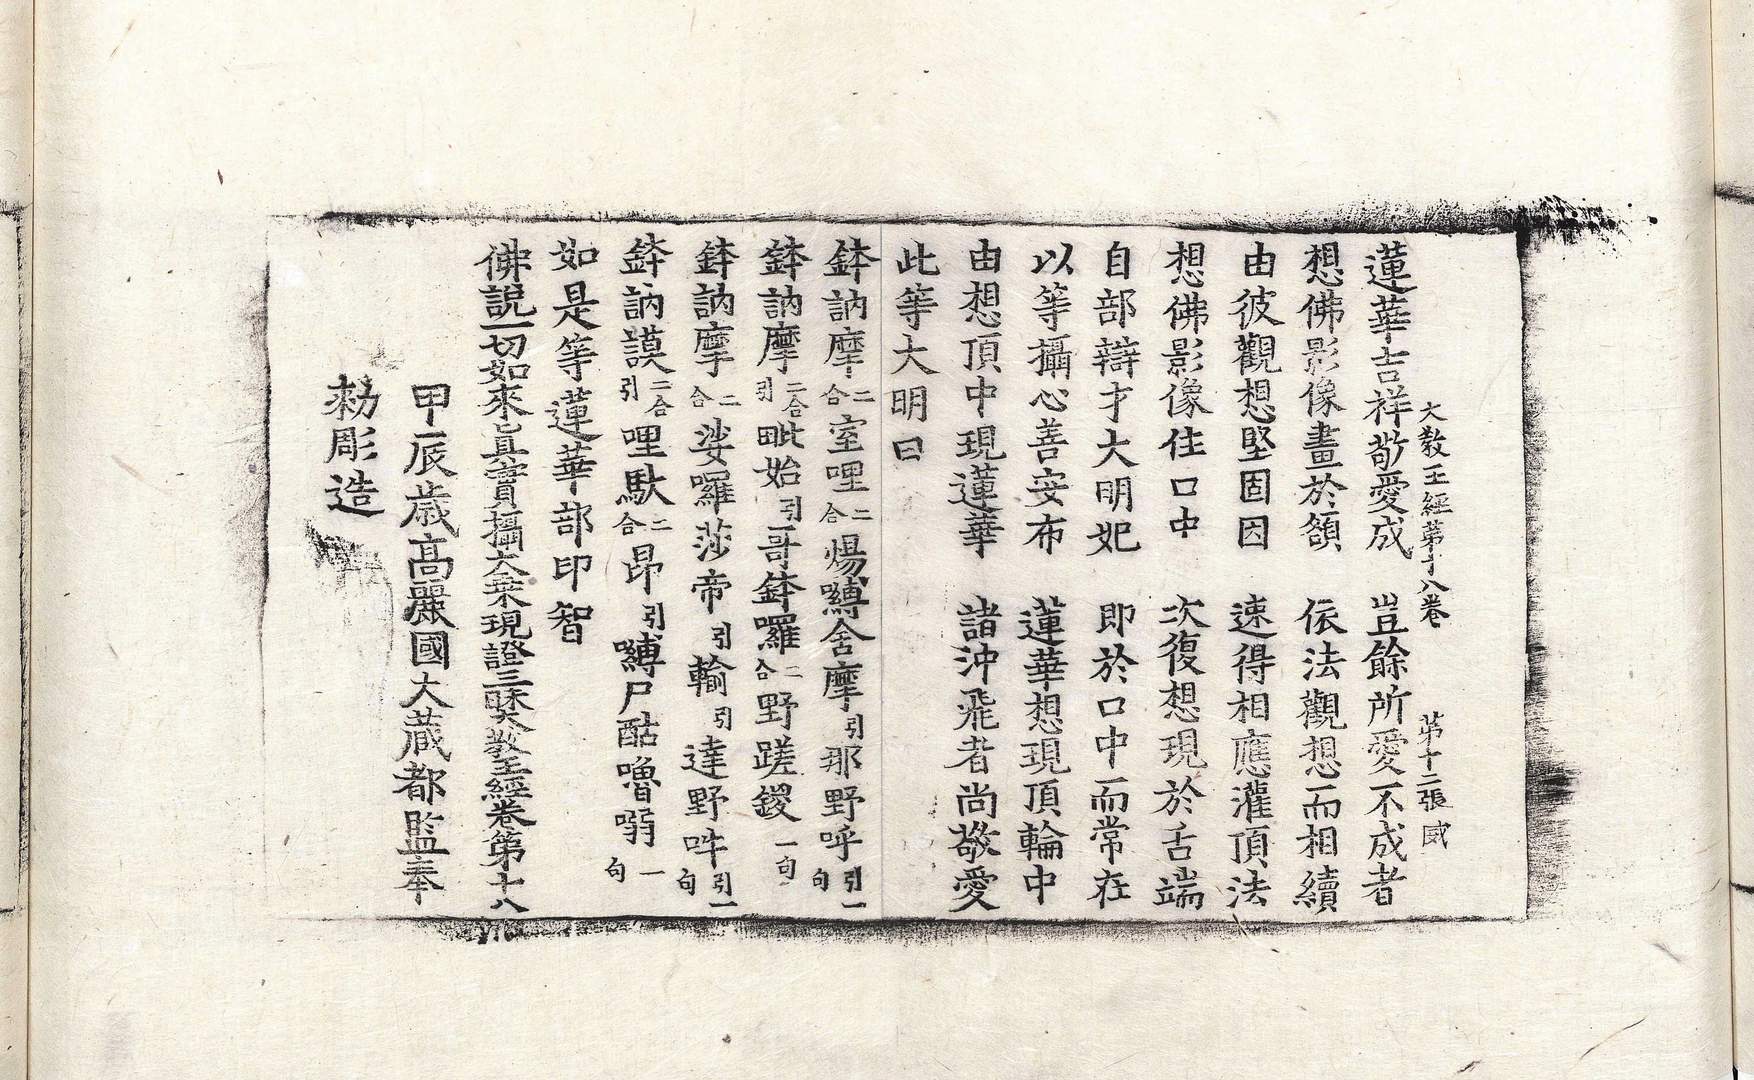 大教王經第十八卷　第十二張　威
蓮華吉祥敬愛成　豈餘所愛不成者
想佛影像畫於額　依法觀想而相續
由彼觀想堅固因　速得相應灌頂法
想佛影像住口中　次復想現於舌端
自部辯才大明妃　即於口中而常在
以等攝心善安布　蓮華想現頂輪中
由想頂中現蓮華　諸沖飛者尚敬愛
此等大明曰
鉢訥摩二合室哩二合煬嚩舍摩引那野呼引一句
鉢訥摩二合引毗始引哥鉢囉二合野蹉鍐一句
鉢訥摩二合娑囉莎帝引輸引達野吽引一句
鉢訥謨二合引哩馱二合昂引嚩尸酤嚕㗚一句
如是等蓮華部印智
佛說一切如來真實攝大乘現證三昧大教王經卷第十八
甲辰歲高麗國大藏都監奉
勑彫造